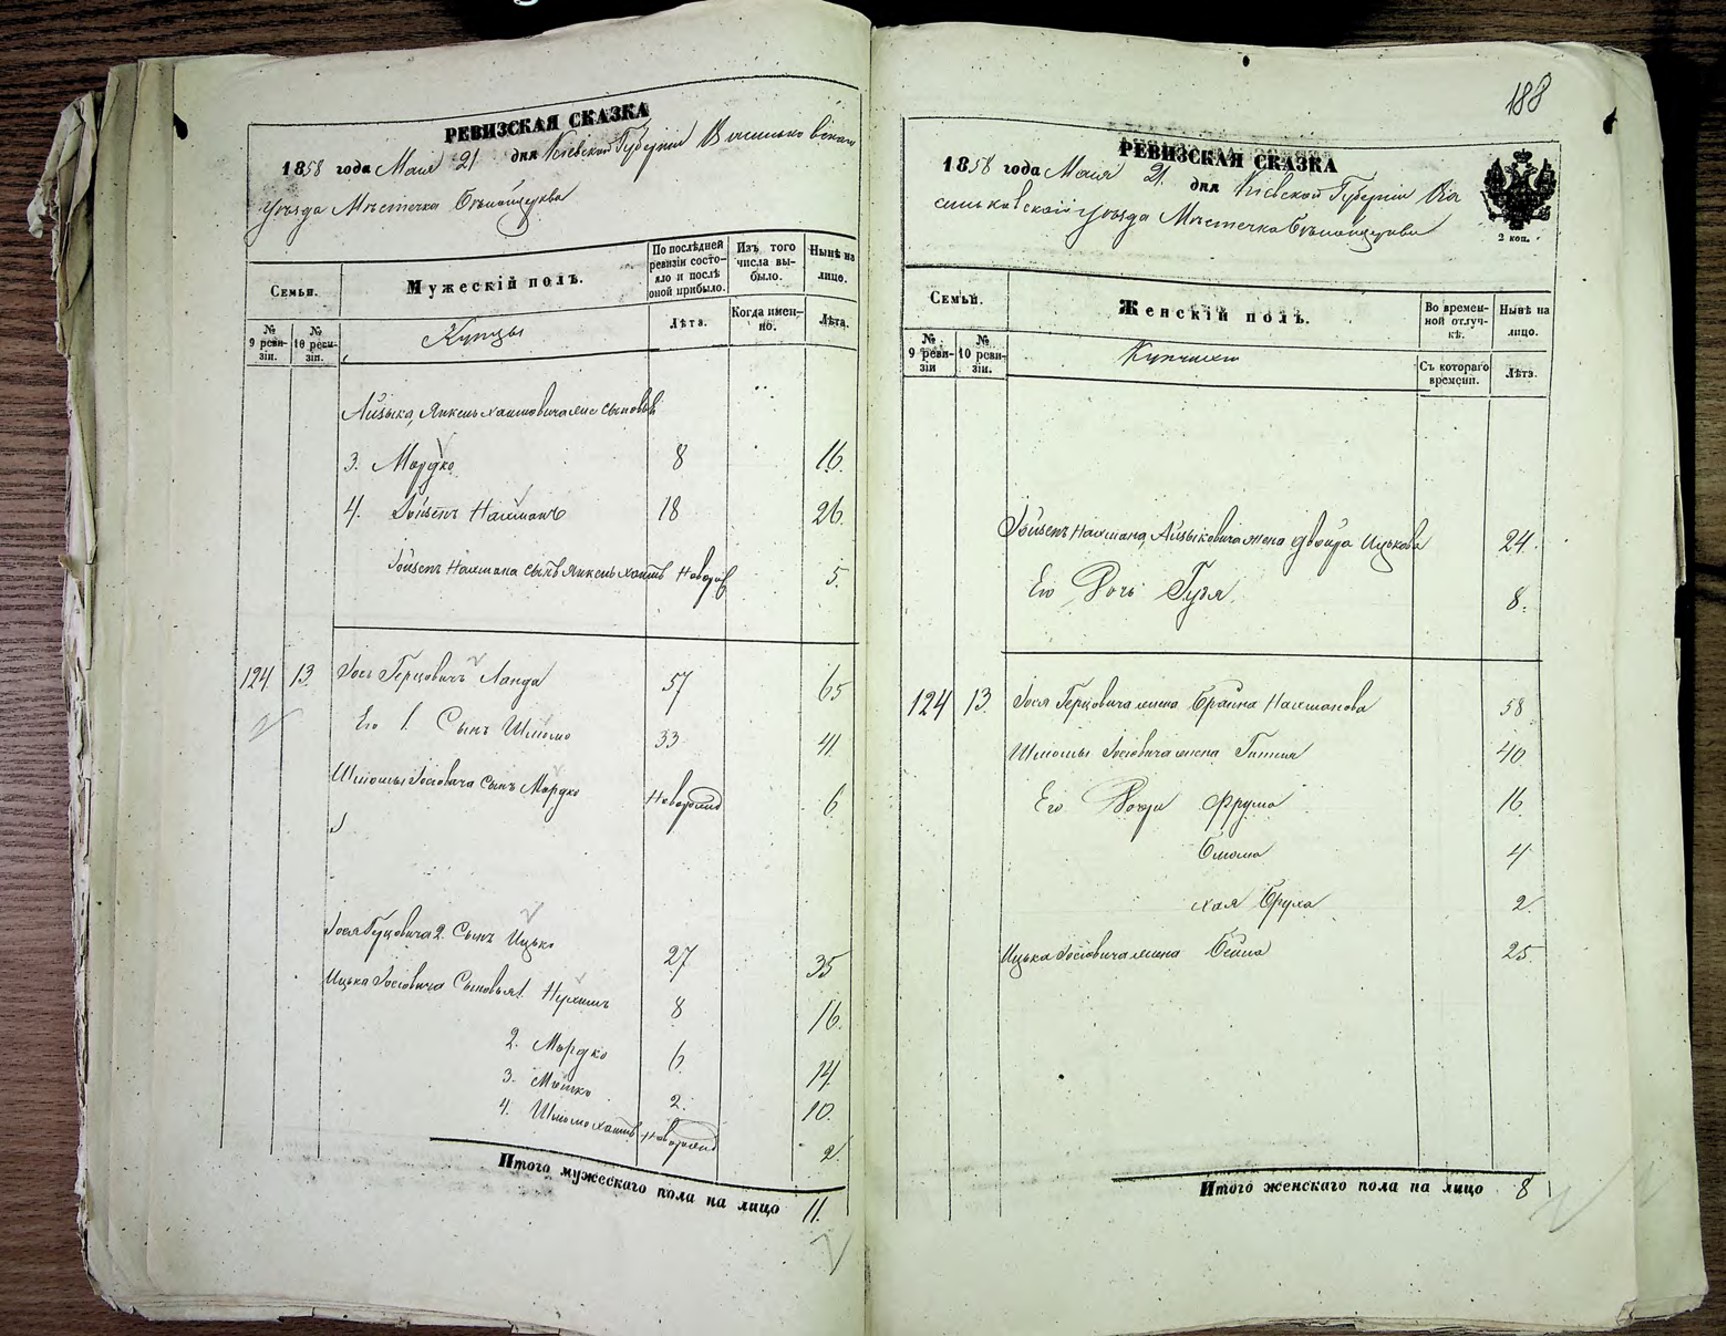 РЕВИЗСКАЯ СКАЗКА
1858 года Маія 21 дня Кіевской Губерніи Васильковскаго
уѣзда Мѣстечка Бѣлойцеркви
Семьи.
Мужескій полъ.
По послѣдней ревизіи состояло и послѣ оной прибыло.
Изъ того числа выбыло.
Нынѣ на лицо.
№ 9 ревизіи.
№ 10 ревизіи.
Купцы
Лѣта.
Когда именно.
Лѣта.
Айзыка, Янкель хаимовича сыновья
3. Мордко 8 16.
4. Іойсепъ Нахманъ 18 26.
Іойсепъ Нахмана сынъ Янкель хаимъ Новорож 5.
124 13. Іось Герцовичъ Ланда 57 65
Его 1. Сынъ Шлиома 33 41.
Шлиомы Іосіовича сынъ Мордко Новорожд 6
Іося Герцовича 2. Сынъ Ицько 27 35
Ицька Іосіовича Сыновья 1. Нухимъ 8 16.
2. Мордко 6 14.
3. 2. 10.
4. Шлиомо хаимъ Новорожд 2.
Итого мужескаго пола на лицо 11.
188
РЕВИЗСКАЯ СКАЗКА
1858 года Маія 21. дня Кіевской Губерніи Ва
сильковскаго уѣзда Мѣстечка Бѣлойцеркви
2 коп.
Семьи.
Женскій полъ.
Во временной отлучкѣ.
Нынѣ на лицо.
№ 9 ревизіи
№ 10 ревизіи.
Купчихи
Съ котораго времени.
Лѣта.
Іойсепъ Нахмана, Айзыковича жена Двойра Ицькова 24.
Его Дочь Гузя 8.
124 13. Іося Герцовича жена Брайна Нахманова 58
Шлиомы Іосіовича жена Гитля 40
Его Дочери Фрума 16.
Блюма 4
хая Бруха 2.
Ицька Іосіовича жена Бейла 25
Итого женскаго пола на лицо 8